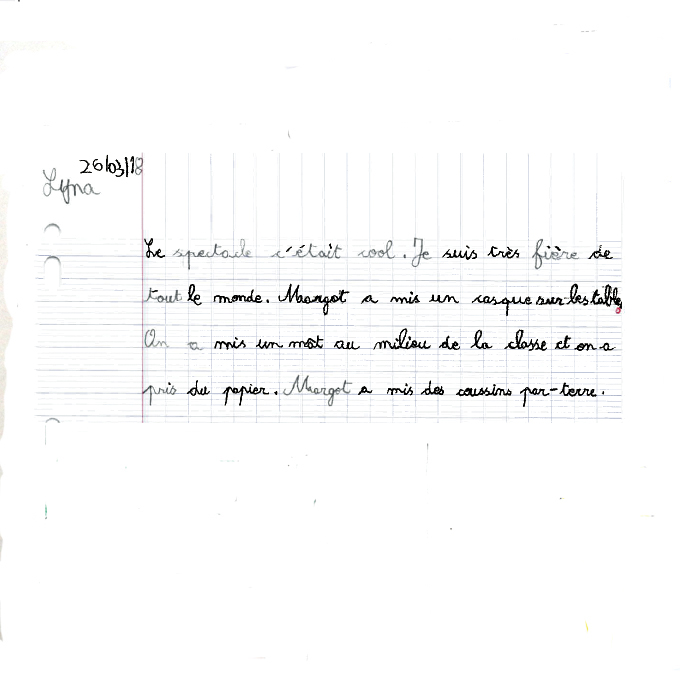 26/03/18
Lyna
Le spectacle c'était cool. Je suis très fière de
tout le monde. Margot a mis un casque sur les tables
On a mis un mot au milieu de la classe et on a
pris du papier. Margot a mis des coussins par-terre.